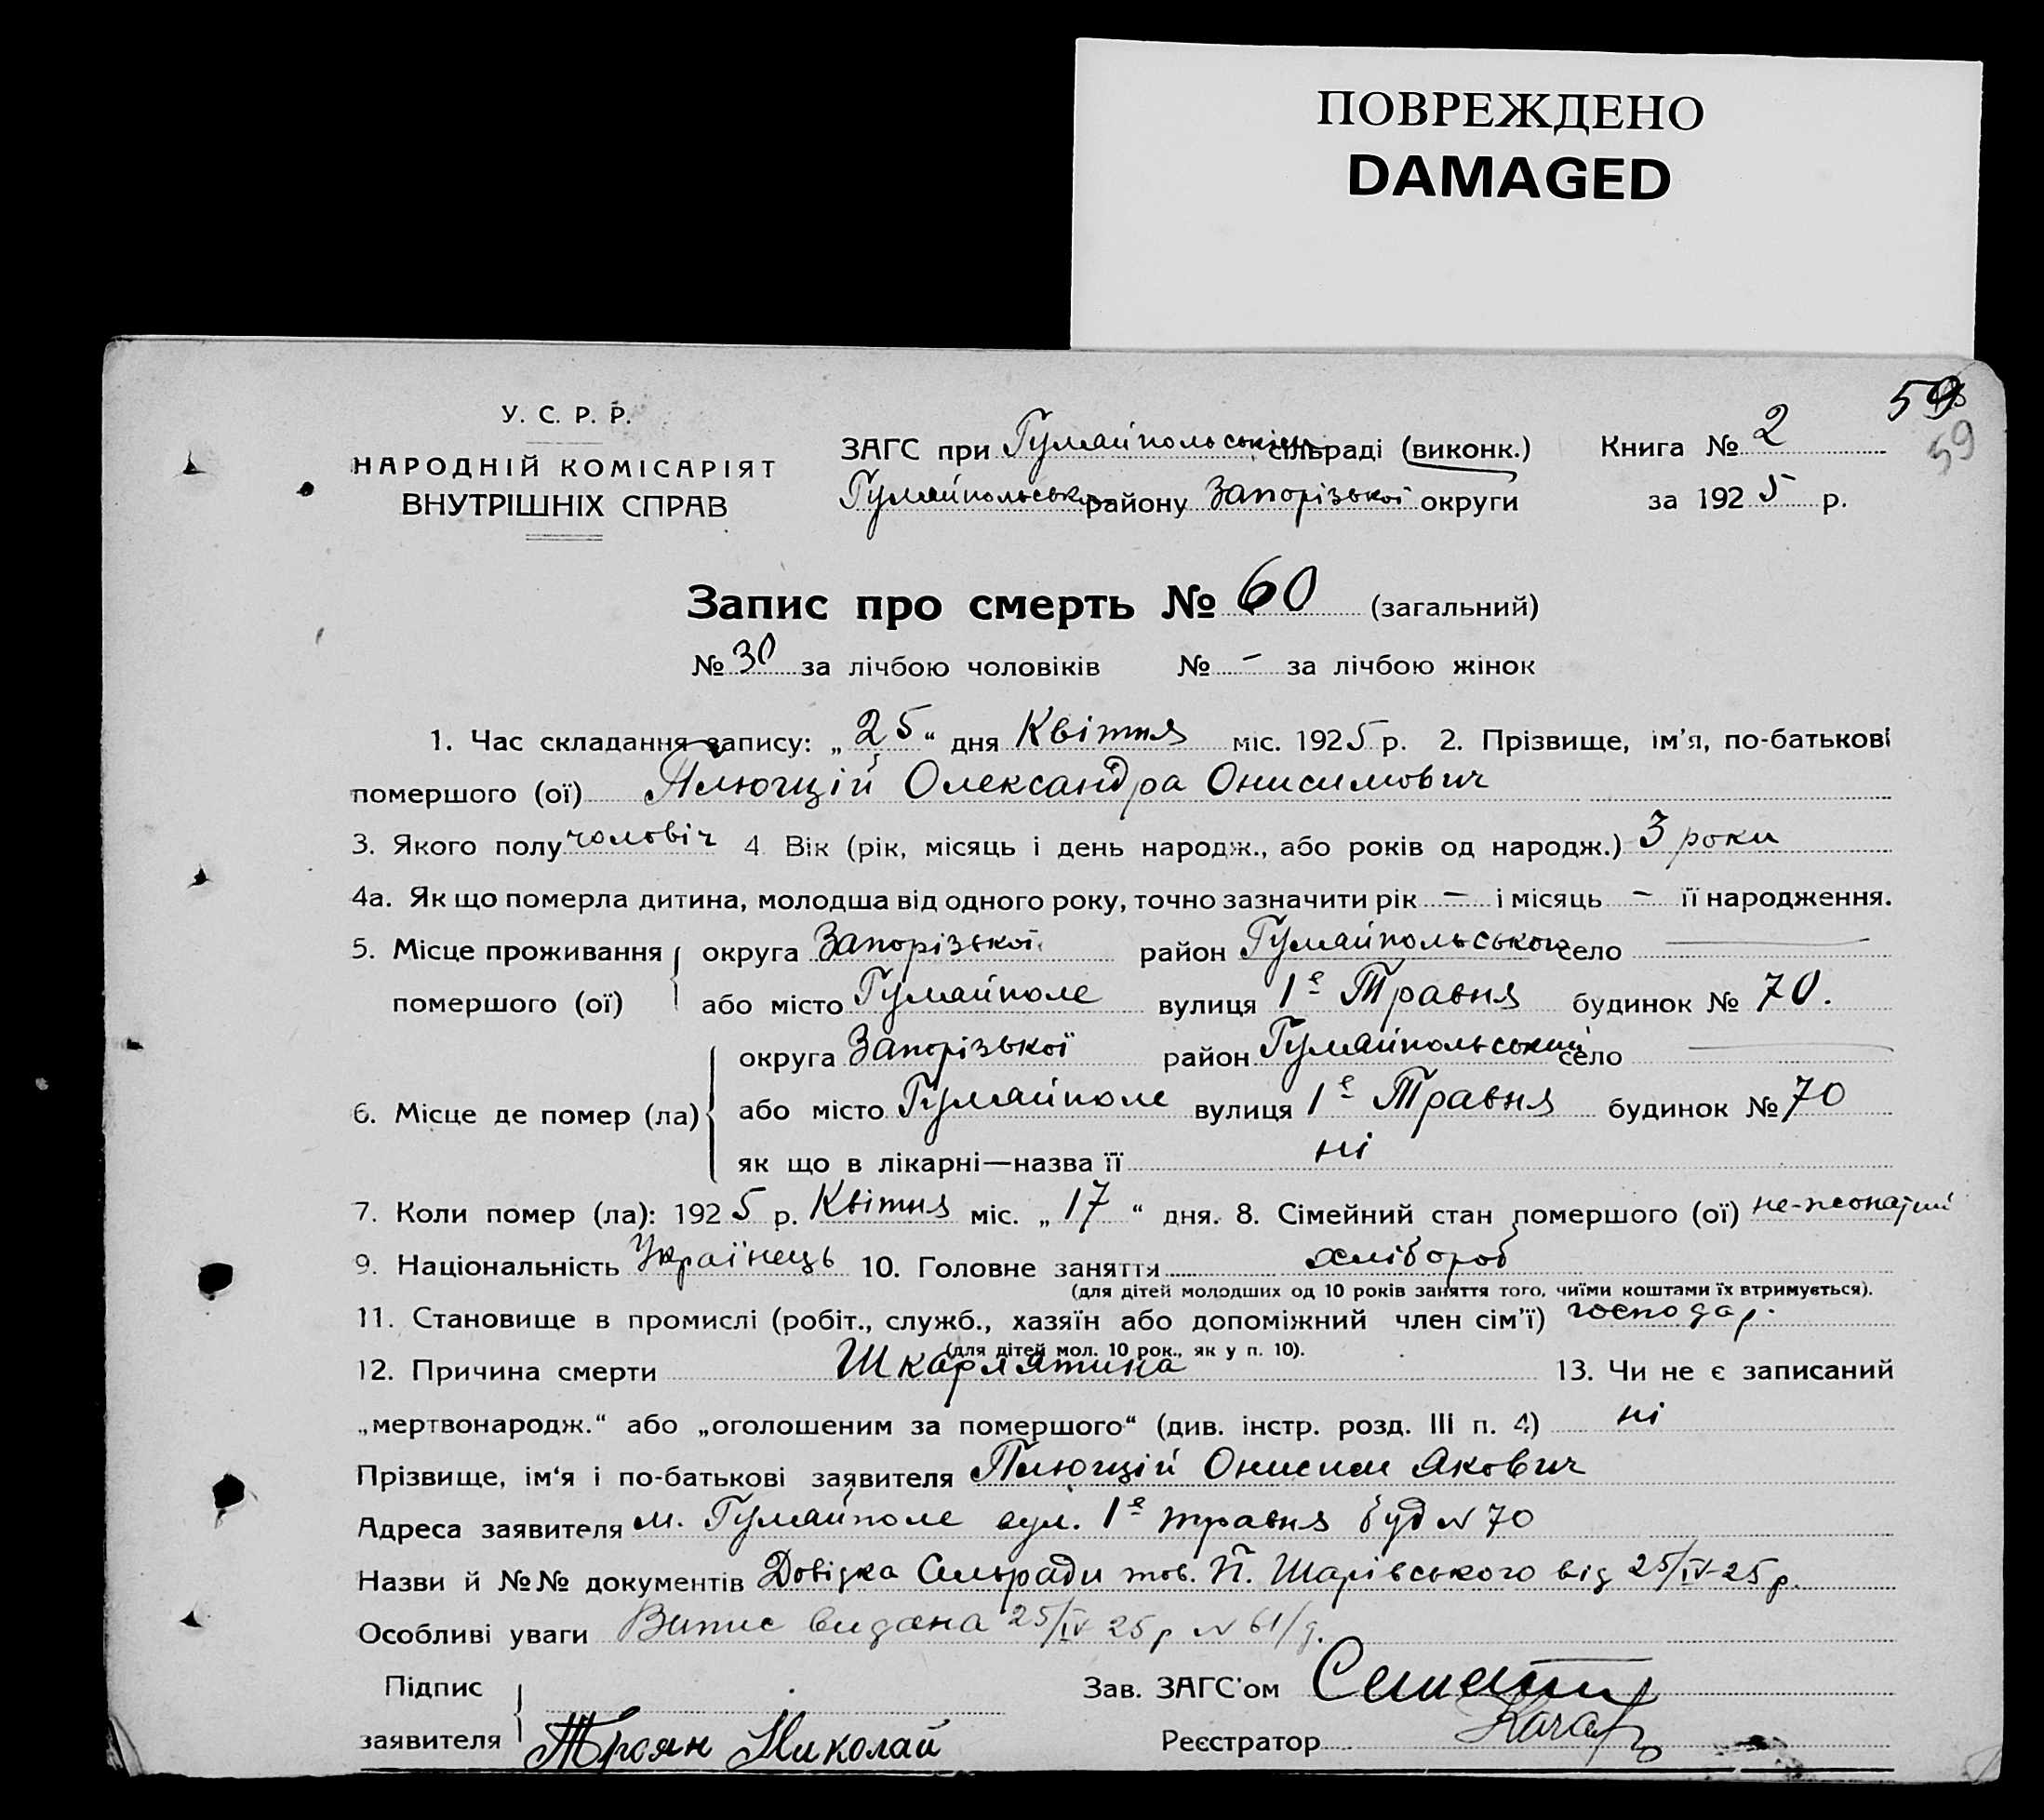 ПОВРЕЖДЕНО
DAMAGED
59
59
У. С. Р. Р.
НАРОДНІЙ КОМІСАРІЯТ
ВНУТРІШНІХ СПРАВ
ЗАГС при Гуляйпольськім сільраді (виконк.) Книга № 2
Гуляйпольськ району Запорізької округи за 1925 р.
Запис про смерть № 60 (загальний)
№ 30 за лічбою чоловіків № - за лічбою жінок
1. Час складання запису: „25“ дня Квітня міс. 1925 р. 2. Прізвище, ім'я, по-батькові
помершого (ої) Плющій Олександра Онисимович
3. Якого полу чоловіч 4 Вік (рік, місяць і день народж., або років од народж.) 3 роки
4а. Як що померла дитина, молодша від одного року, точно зазначити рік - і місяць - її народження.
5. Місце проживання округа Запорізької район Гуляйпольського село
помершого (ої) або місто Гуляйполе вулиця 1е Травня будинок № 70.
округа Запорізької район Гуляйпольський село
6. Місце де помер (ла) або місто Гуляйполе вулиця 1е Травня будинок № 70
як що в лікарні—назва її ні
7. Коли помер (ла): 1925 р. Квітня міс. „17“ дня. 8. Сімейний стан помершого (ої) не-жонатий
9. Національність Українець 10. Головне заняття хлібороб
(для дітей молодших од 10 років заняття того, чиїми коштами їх втримується).
11. Становище в промислі (робіт., служб., хазяїн або допоміжний член сім'ї) господар.
(для дітей мол. 10 рок., як у п. 10).
12. Причина смерти Шкарлятина 13. Чи не є записаний
„мертвонародж.“ або „оголошеним за помершого“ (див. інстр. розд. III п. 4) ні
Прізвище, ім'я і по-батькові заявителя Плющій Онисим Якович
Адреса заявителя м. Гуляйполе вул. 1е травня буд N 70
Назви й №№ документів Довідка Сельради тов. П. Шарівського від 25/IV-25 р.
Особливі уваги Випис видана 25/IV 25 р N 61/g.
Підпис Зав. ЗАГС'ом
заявителя Троян Николай Реєстратор